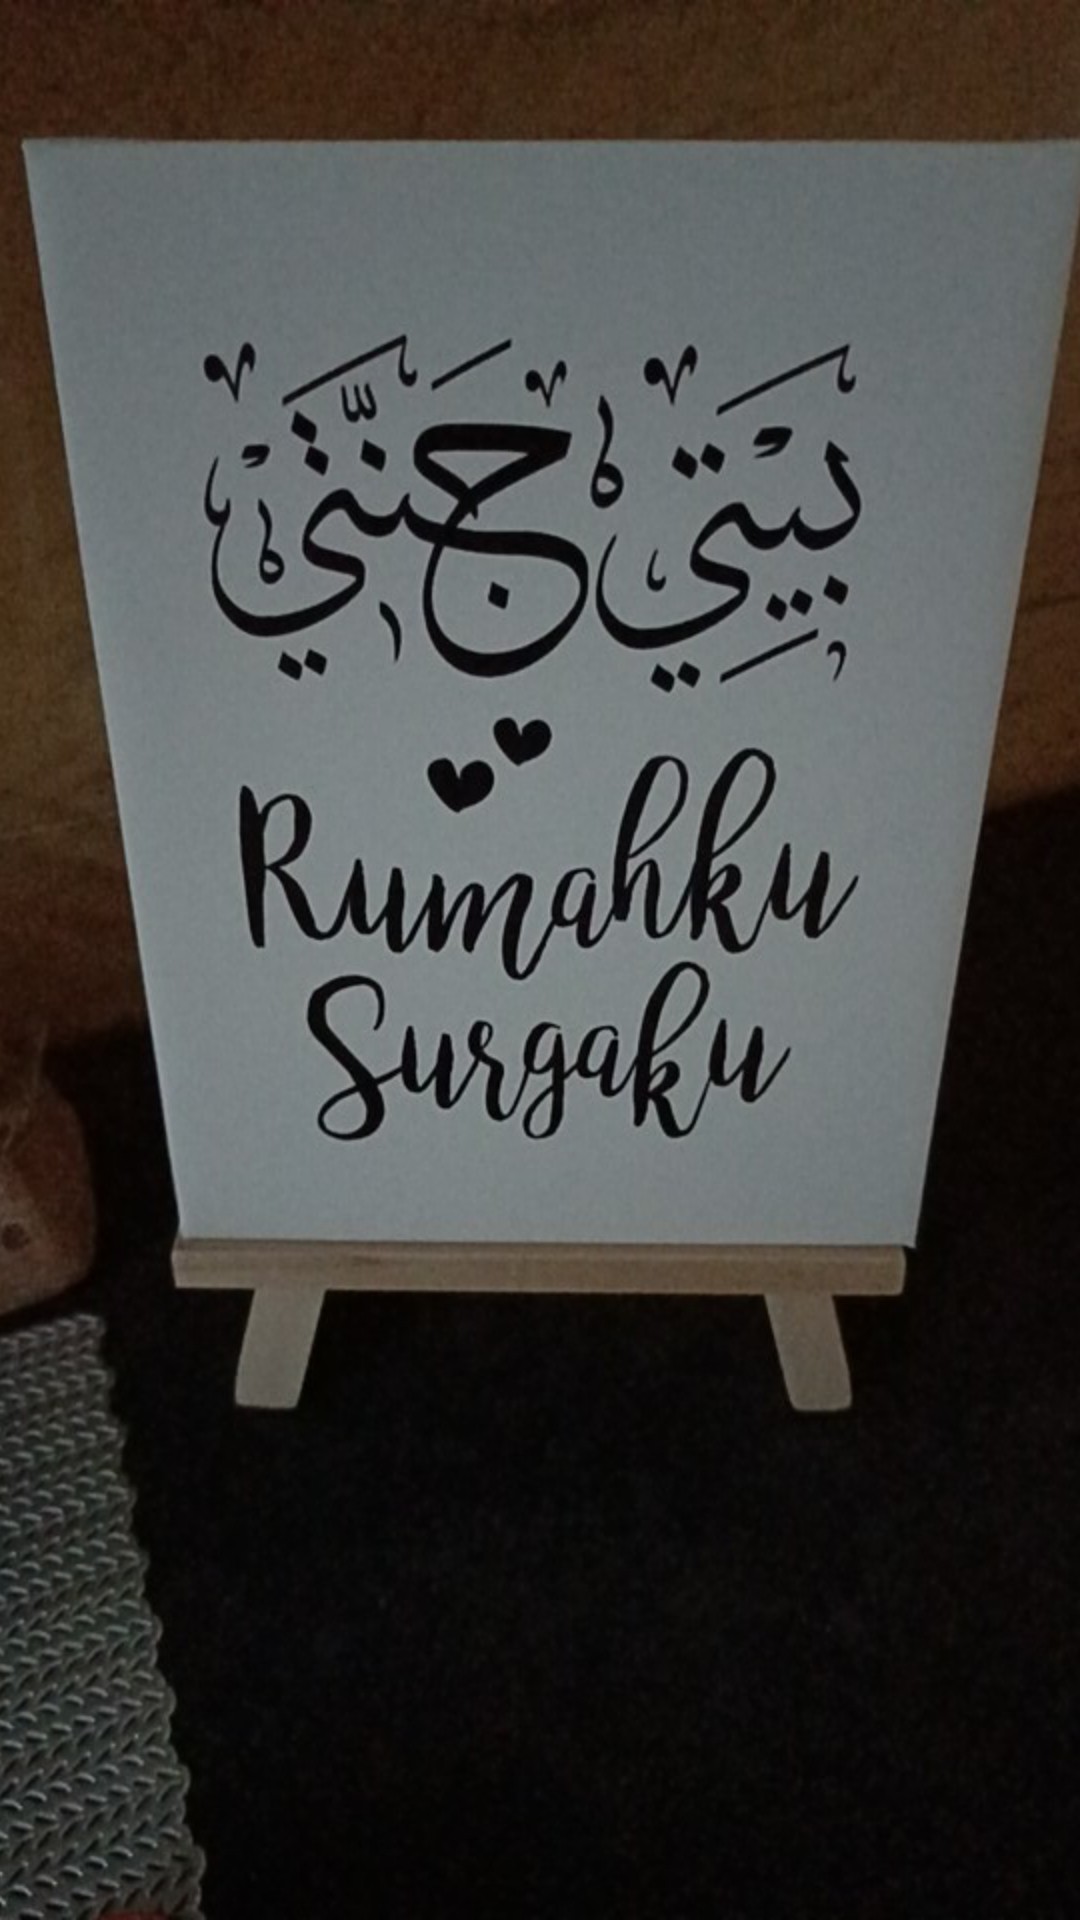 بَيْتِي جَنَّتِي
Rumahku
Surgaku